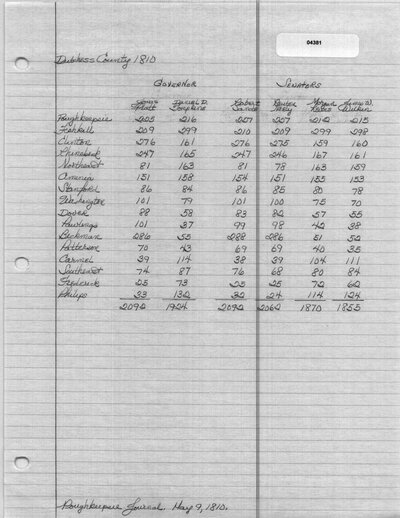 04381
Dutchess County 1810
Governor Senators
Jonas Platt Daniel D. Tompkins Robert Sands Reuben Morgan Lewis
Poughkeepsie 205 216 207 207 212 215
Fishkill 209 299 210 209 299 298
Clinton 276 161 276 275 159 160
Rhinebeck 247 165 247 246 167 161
Northeast 81 163 81 78 163 159
Amenia 151 158 154 151 155 153
Stanford 86 84 86 85 80 78
Washington 101 79 101 100 75 70
Dover 88 58 83 82 57 55
Pawlings 101 37 99 98 42 38
Beekman 286 55 288 286 51 52
Patterson 70 43 69 69 40 35
Carmel 39 114 38 39 104 111
Southeast 74 87 76 68 80 84
Frederick 25 73 25 25 72 62
Philips 33 132 32 24 114 124
2092 1924 2092 2062 1870 1855
Poughkeepsie Journal. May 9, 1810.